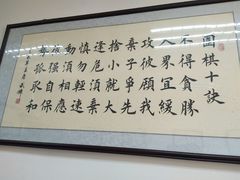 圍棋十訣
不得貪勝
入界宜緩
攻彼顧我
棄子爭先
捨小就大
逢危須棄
慎勿輕速
動須相應
彼強自保
勢孤取和